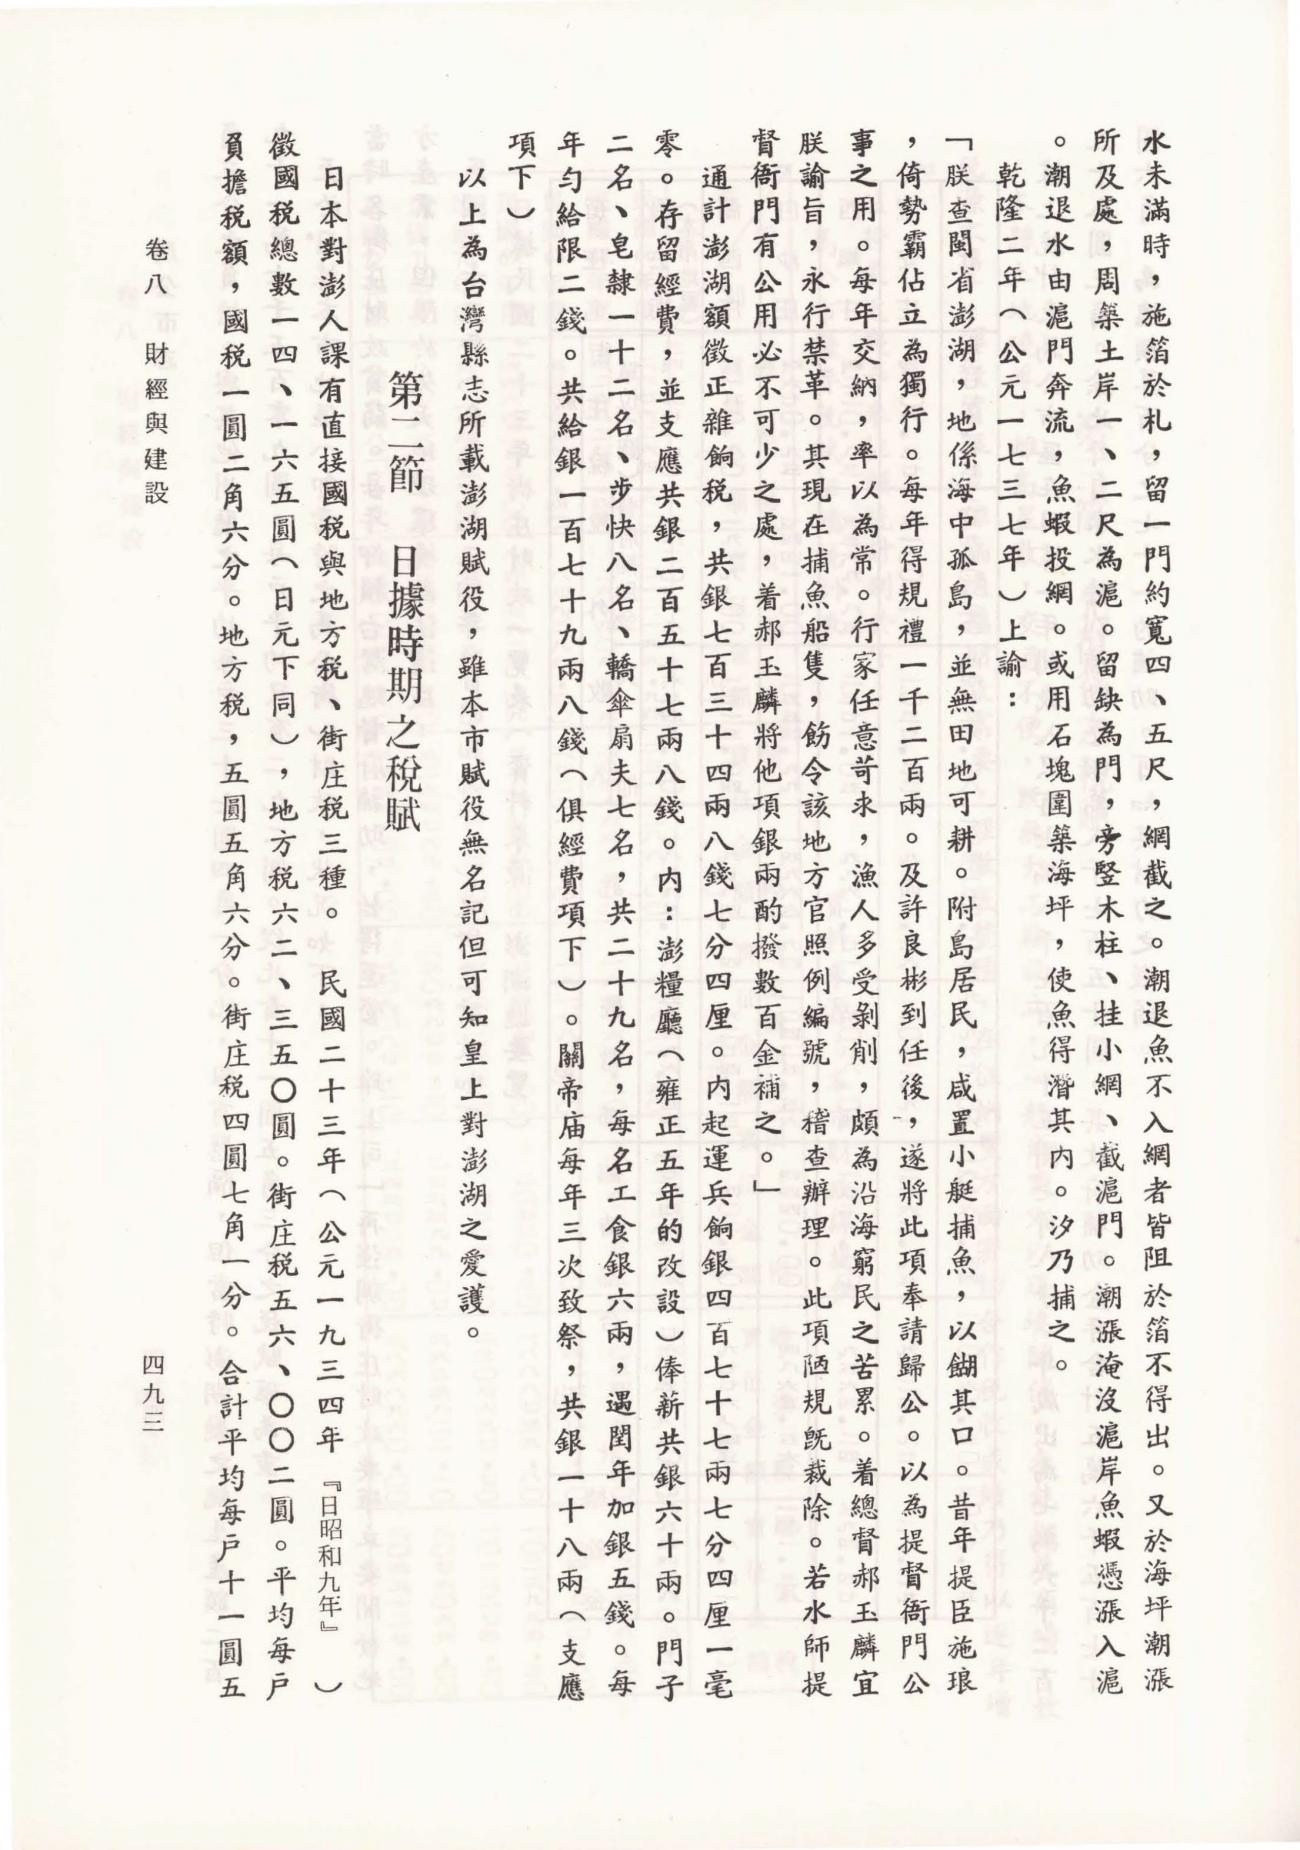 水未滿時，施箔於札，留一門約寬四、五尺，網截之。潮退魚不入網者皆阻於箔不得出。又於海坪潮漲
所及處，周築土岸一、二尺為滬。留缺為門，旁竪木柱、挂小網、截滬門。潮漲淹沒滬岸魚蝦憑漲入滬
。潮退水由滬門奔流，魚蝦投網。或用石塊圍築海坪，使魚得潛其內。汐乃捕之。
乾隆二年（公元一七三七年）上諭：
「朕查閩省澎湖，地係海中孤島，並無田地可耕。附島居民，咸置小艇捕魚，以餬其口。昔年提臣施琅
，倚勢霸佔立為獨行。每年得規禮一千二百兩。及許良彬到任後，遂將此項奉請歸公。以為提督衙門公
事之用。每年交納，率以為常。行家任意苛求，漁人多受剝削，頗為沿海窮民之苦累。着總督郝玉麟宜
朕諭旨，永行禁革。其現在捕魚船隻，飭令該地方官照例編號，稽查辦理。此項陋規既裁除。若水師提
督衙門有公用必不可少之處，着郝玉麟將他項銀兩酌撥數百金補之。」
通計澎湖額徵正雜餉稅，共銀七百三十四兩八錢七分四厘。內起運兵餉銀四百七十七兩七分四厘一毫
零。存留經費，並支應共銀二百五十七兩八錢。內：澎糧廳（雍正五年的改設）俸薪共銀六十兩。門子
二名、皂隸一十二名、步快八名、轎傘扇夫七名，共二十九名，每名工食銀六兩，遇閏年加銀五錢。每
年勻給限二錢。共給銀一百七十九兩八錢（俱經費項下）。關帝庙每年三次致祭，共銀一十八兩（支應
項下）
以上為台灣縣志所載澎湖賦役，雖本市賦役無名記但可知皇上對澎湖之愛護。
第二節　日據時期之稅賦
日本對澎人課有直接國税與地方税、街庄税三種。民國二十三年（公元一九三四年『日昭和九年』）
徵國税總數一四、一六五圓（日元下同），地方税六二、三五〇圓。街庄税五六、〇〇二圓。平均每戶
負擔税額，國税一圓二角六分。地方税，五圓五角六分。街庄税四圓七角一分。合計平均每戶十一圓五
卷八　財經與建設
四九三